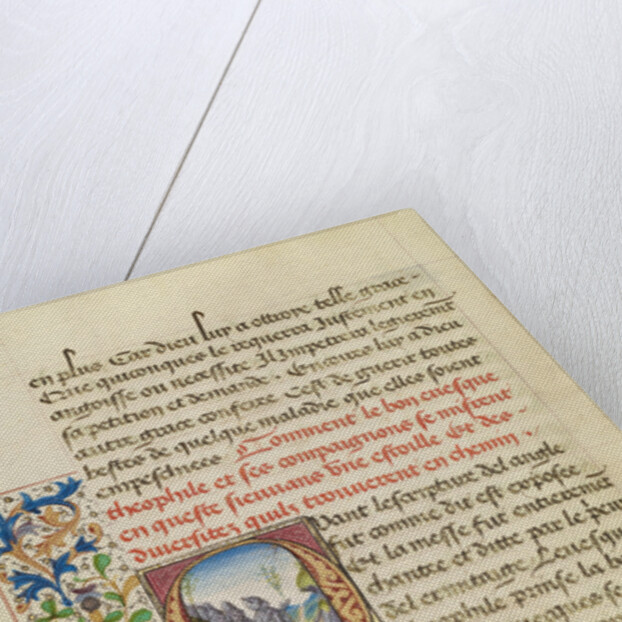 en plus Car dieu luy a ottroye telle grace
Que quiconques le requerra Justement en
angoisse ou necessite Il Impetera legierement
sa petition et demande. Encores luy a dieu
autre grace confere Cest de guerir toutes
bestes de quelque maladie que elles soient
empeschees Comment le bon euesque
theophile et ses compaignons se misrent
en queste sieuuans vne estoille Et des
diuersitez quilz trouuerent en chemin.
Quant lescripture del angle
comme dit est exposee
Et la messe fut entierement
chantee et ditte par le
del ermitaige Leuesque
theophile prinse la